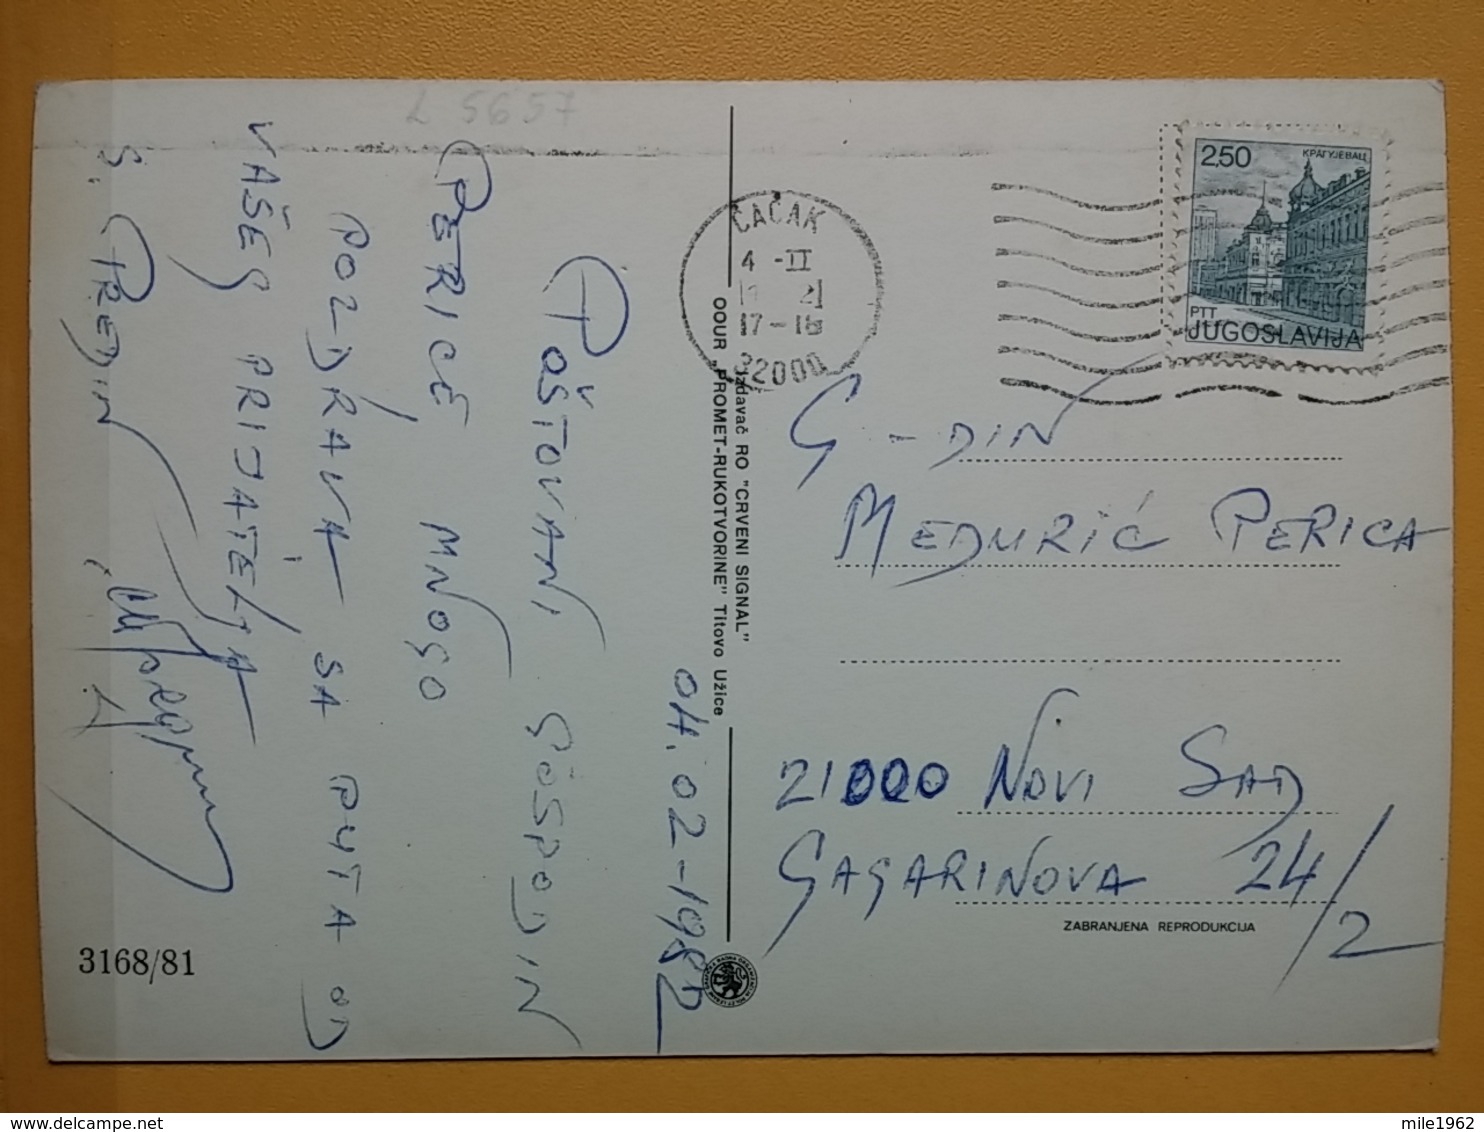 L 5657
04.02-1982
POŠTOVANI GOSPODIN
PERICE MNOGO
POZDRAVA SA PUTA OD
VAŠEG PRIJATELJA
S. PREDIN
3168/81
OOUR „PROMET-RUKOTVORINE" Titovo Užice
Izdavač RO "CRVENI SIGNAL"
ČAČAK
4 -II
17-18
32000
2.50
КРАГУЈЕВАЦ
PTT
JUGOSLAVIJA
G-DIN
MEDURIĆ PERICA
21000 NOVI SAD
GAGARINOVA 24/2
ZABRANJENA REPRODUKCIJA
delcampe.net
mile1962